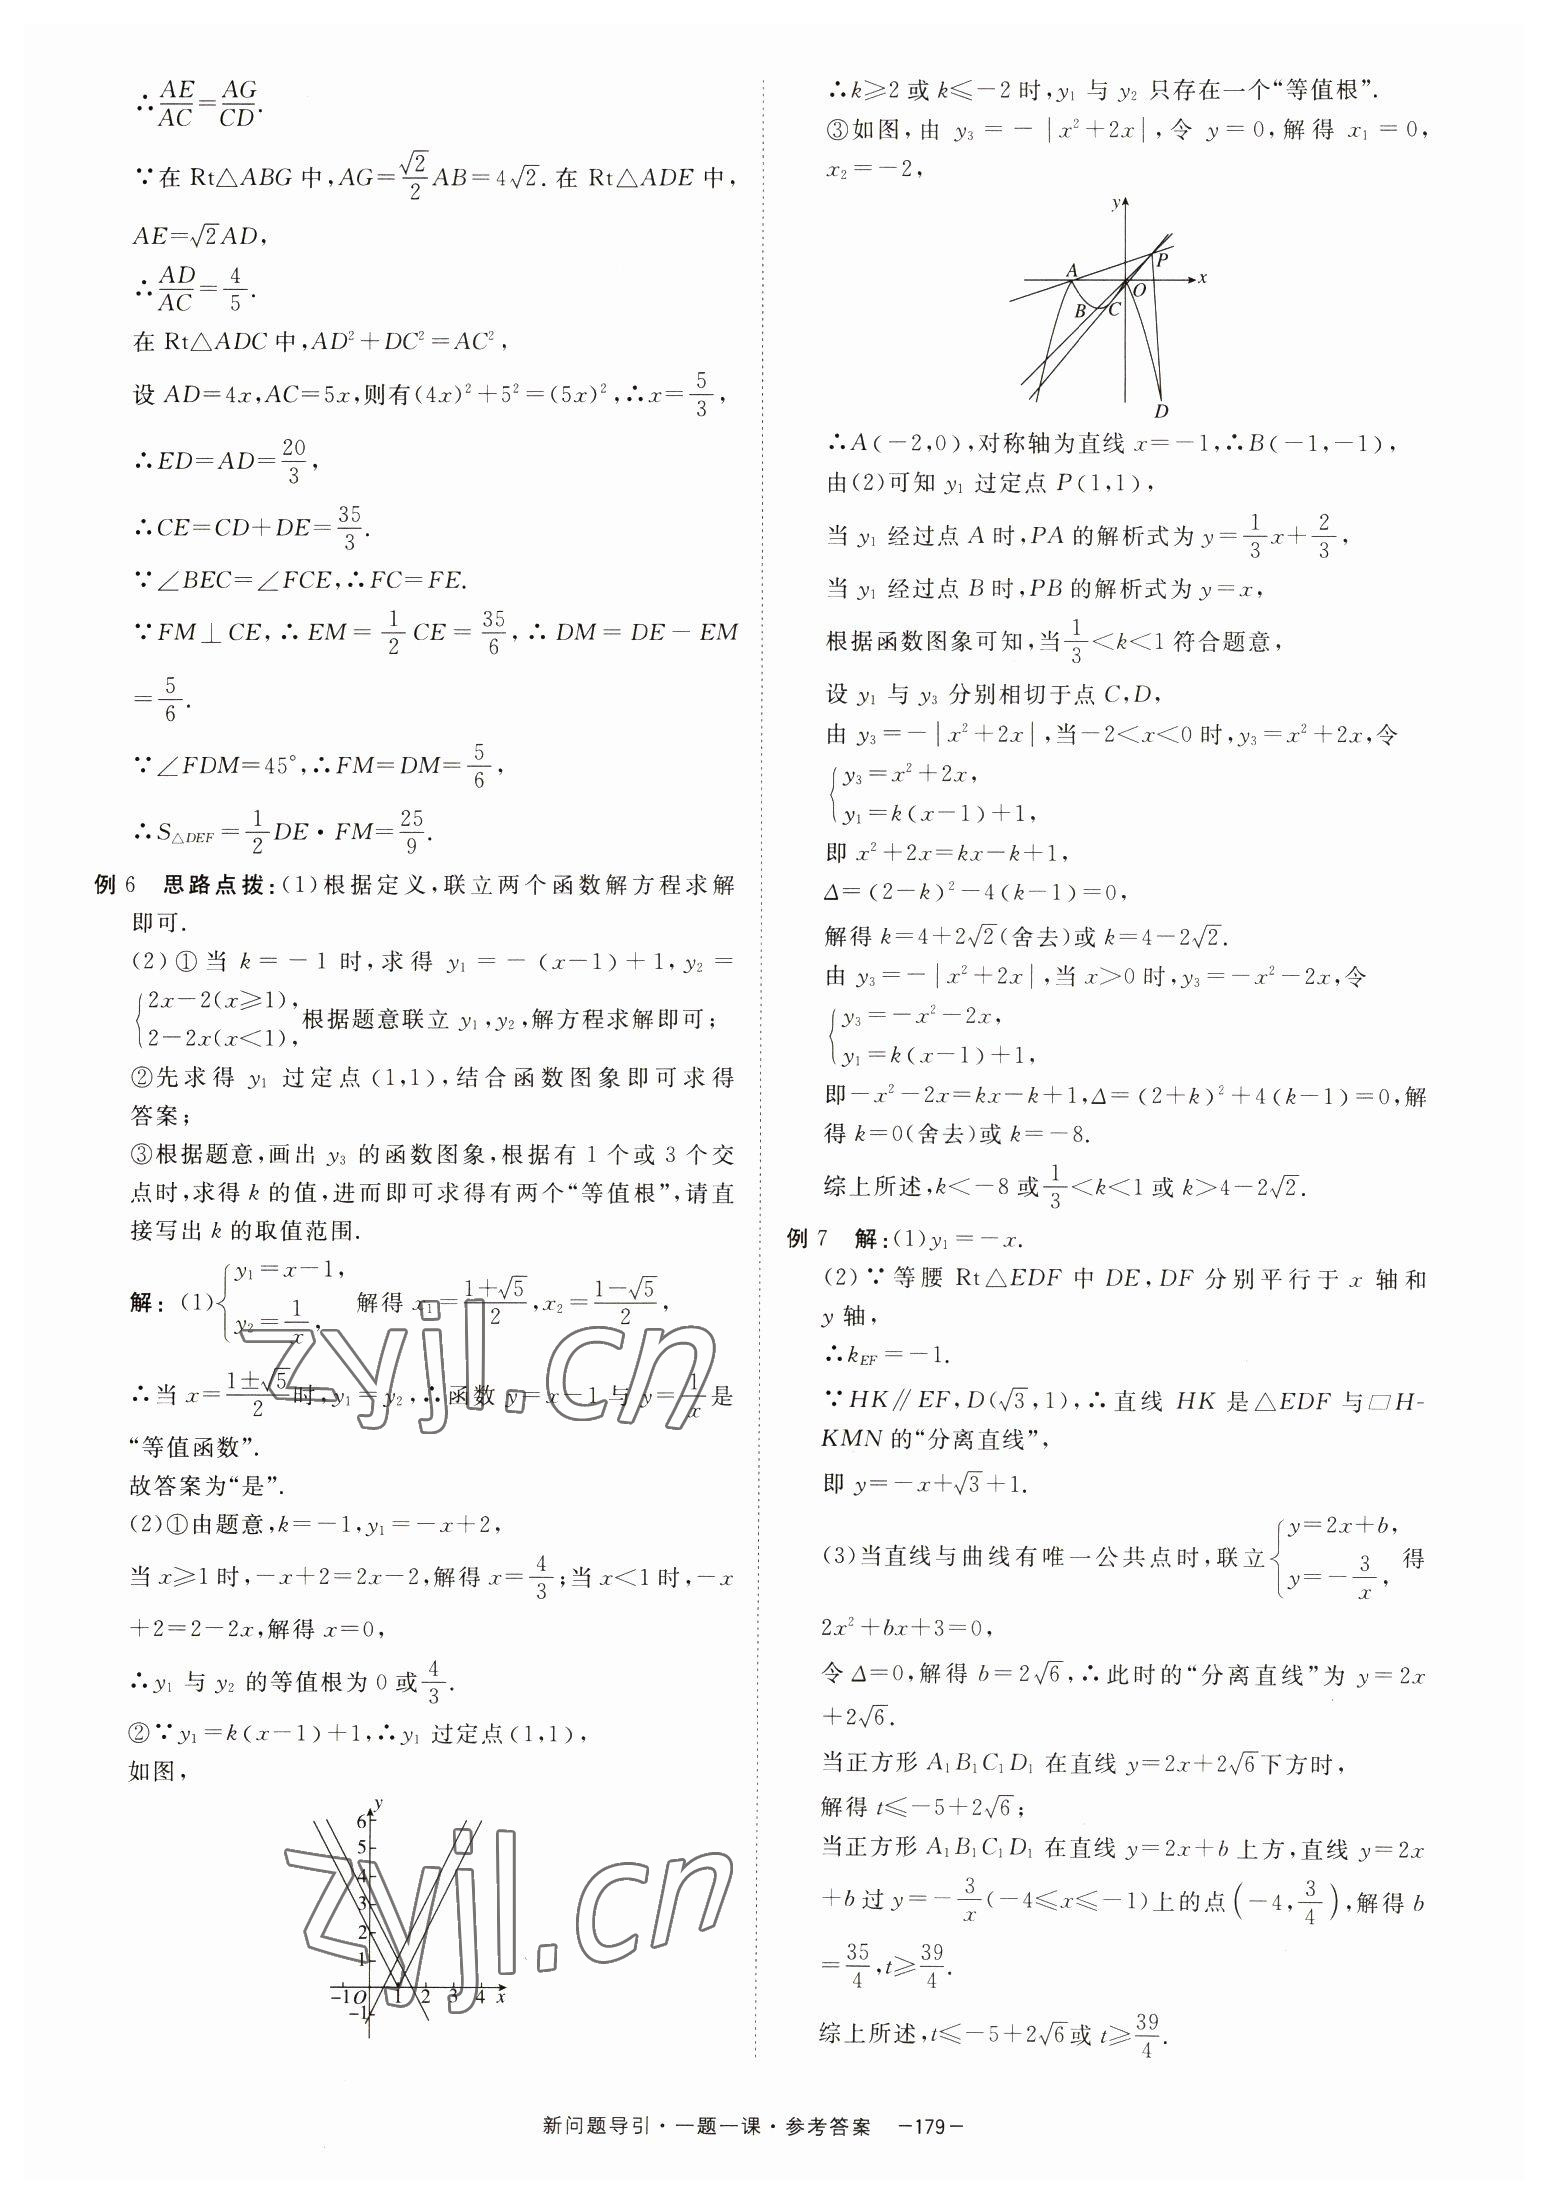 ∴AE/AC=AG/CD.
∵在 Rt△ABG 中,AG=√2/2 AB=4√2. 在 Rt△ADE 中,
AE=√2AD,
∴AD/AC=4/5.
在 Rt△ADC 中,AD²+DC²=AC²,
设 AD=4x,AC=5x,则有(4x)²+5²=(5x)²,∴x=5/3,
∴ED=AD=20/3,
∴CE=CD+DE=35/3.
∵∠BEC=∠FCE,∴FC=FE.
∵FM⊥CE,∴EM=1/2 CE=35/6,∴DM=DE-EM
=5/6.
∵∠FDM=45°,∴FM=DM=5/6,
∴S△DEF=1/2 DE·FM=25/9.
例 6 思路点拨:(1)根据定义,联立两个函数解方程求解
即可.
(2)①当 k=-1 时,求得 y₁=-(x-1)+1,y₂=
{2x-2(x≥1),
2-2x(x<1), 根据题意联立 y₁,y₂,解方程求解即可;
②先求得 y₁ 过定点(1,1),结合函数图象即可求得
答案;
③根据题意,画出 y₃ 的函数图象,根据有 1 个或 3 个交
点时,求得 k 的值,进而即可求得有两个“等值根”,请直
接写出 k 的取值范围.
解:(1){y₁=x-1,
y₂=1/x, 解得 x₁=(1+√5)/2,x₂=(1-√5)/2,
∴当 x=(1±√5)/2时,y₁=y₂,∴函数 y=x-1 与 y=1/x是
“等值函数”.
故答案为“是”.
(2)①由题意,k=-1,y₁=-x+2,
当 x≥1 时,-x+2=2x-2,解得 x=4/3;当 x<1 时,-x
+2=2-2x,解得 x=0,
∴y₁ 与 y₂ 的等值根为 0 或4/3.
②∵y₁=k(x-1)+1,∴y₁ 过定点(1,1),
如图,
y
6
5
4
3
2
1
-1 O 1 2 3 4 x
-1
∴k≥2 或 k≤-2 时,y₁ 与 y₂ 只存在一个“等值根”.
③如图,由 y₃=-|x²+2x|,令 y=0,解得 x₁=0,
x₂=-2,
y
P
A
x
O
B C
D
∴A(-2,0),对称轴为直线 x=-1,∴B(-1,-1),
由(2)可知 y₁ 过定点 P(1,1),
当 y₁ 经过点 A 时,PA 的解析式为 y=1/3 x+2/3,
当 y₁ 经过点 B 时,PB 的解析式为 y=x,
根据函数图象可知,当1/3<k<1 符合题意,
设 y₁ 与 y₃ 分别相切于点 C,D,
由 y₃=-|x²+2x|,当-2<x<0 时,y₃=x²+2x,令
{y₃=x²+2x,
y₁=k(x-1)+1,
即 x²+2x=kx-k+1,
Δ=(2-k)²-4(k-1)=0,
解得 k=4+2√2(舍去)或 k=4-2√2.
由 y₃=-|x²+2x|,当 x>0 时,y₃=-x²-2x,令
{y₃=-x²-2x,
y₁=k(x-1)+1,
即-x²-2x=kx-k+1,Δ=(2+k)²+4(k-1)=0,解
得 k=0(舍去)或 k=-8.
综上所述,k<-8 或1/3<k<1 或 k>4-2√2.
例 7 解:(1)y₁=-x.
(2)∵等腰 Rt△EDF 中 DE,DF 分别平行于 x 轴和
y 轴,
∴k_EF=-1.
∵HK∥EF,D(√3,1),∴直线 HK 是△EDF 与▱H-
KMN 的“分离直线”,
即 y=-x+√3+1.
(3)当直线与曲线有唯一公共点时,联立{y=2x+b,
y=-3/x, 得
2x²+bx+3=0,
令 Δ=0,解得 b=2√6,∴此时的“分离直线”为 y=2x
+2√6.
当正方形 A₁B₁C₁D₁ 在直线 y=2x+2√6下方时,
解得 t≤-5+2√6;
当正方形 A₁B₁C₁D₁ 在直线 y=2x+b 上方,直线 y=2x
+b 过 y=-3/x(-4≤x≤-1)上的点(-4,3/4),解得 b
=35/4,t≥39/4.
综上所述,t≤-5+2√6或 t≥39/4.
新问题导引·一题一课·参考答案 -179-
zyjl.cn
zyjl.cn